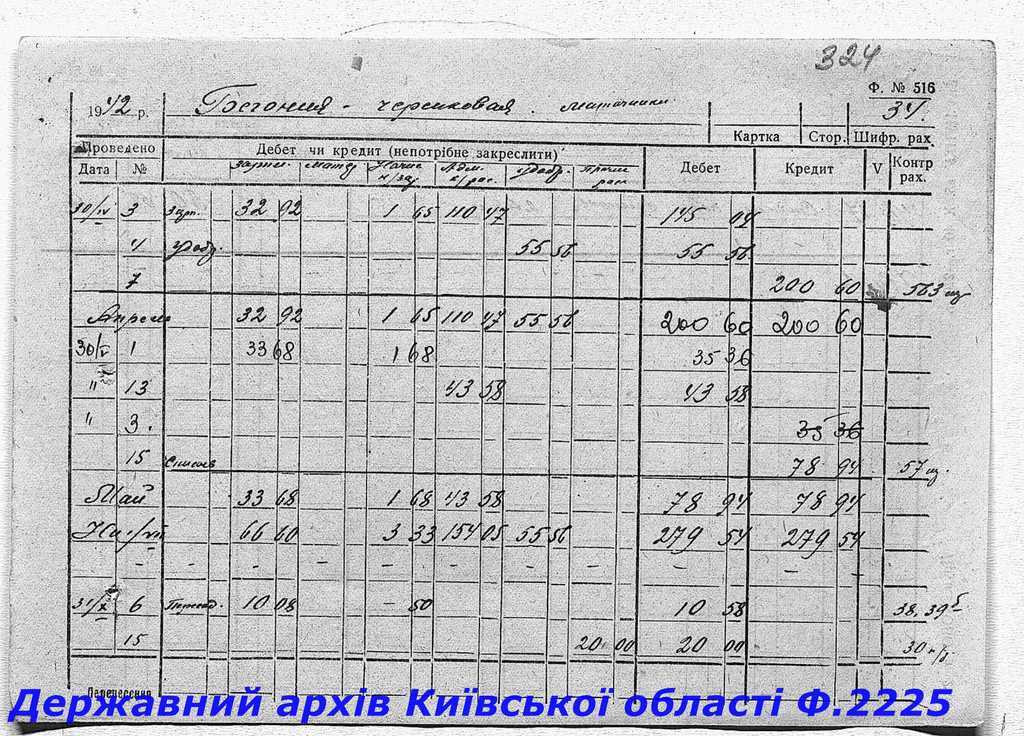 324
Ф. № 516
1942 р. Бегония - черенковая. маточники 34.
Картка Стор. Шифр. рах.
Проведено Дебет чи кредит (непотрібне закреслити) Дебет Кредит V Контр рах.
Дата № зарпл. матер. Начис к/зар. Адм. х/рас. Удобр. прочие рас.
30/IV 3 Зарп. 32 92 1 65 110 47 145 04
4 Удобр. 55 56 55 56
7 200 60 563
Апрель 32 92 1 65 110 47 55 56 200 60 200 60
30/V 1 33 68 1 68 35 36
" 13 43 58 43 58
" 3. 35 36
15 Списов 78 94 57
Май 33 68 1 68 43 58 78 94 78 94
На 66 60 3 33 154 05 55 56 279 54 279 54
- - - - - - - - -
31/X 6 10 08 - 50 10 58 38, 39б
15 20 00 20 00 30
Перенесення
Державний архів Київської області Ф.2225